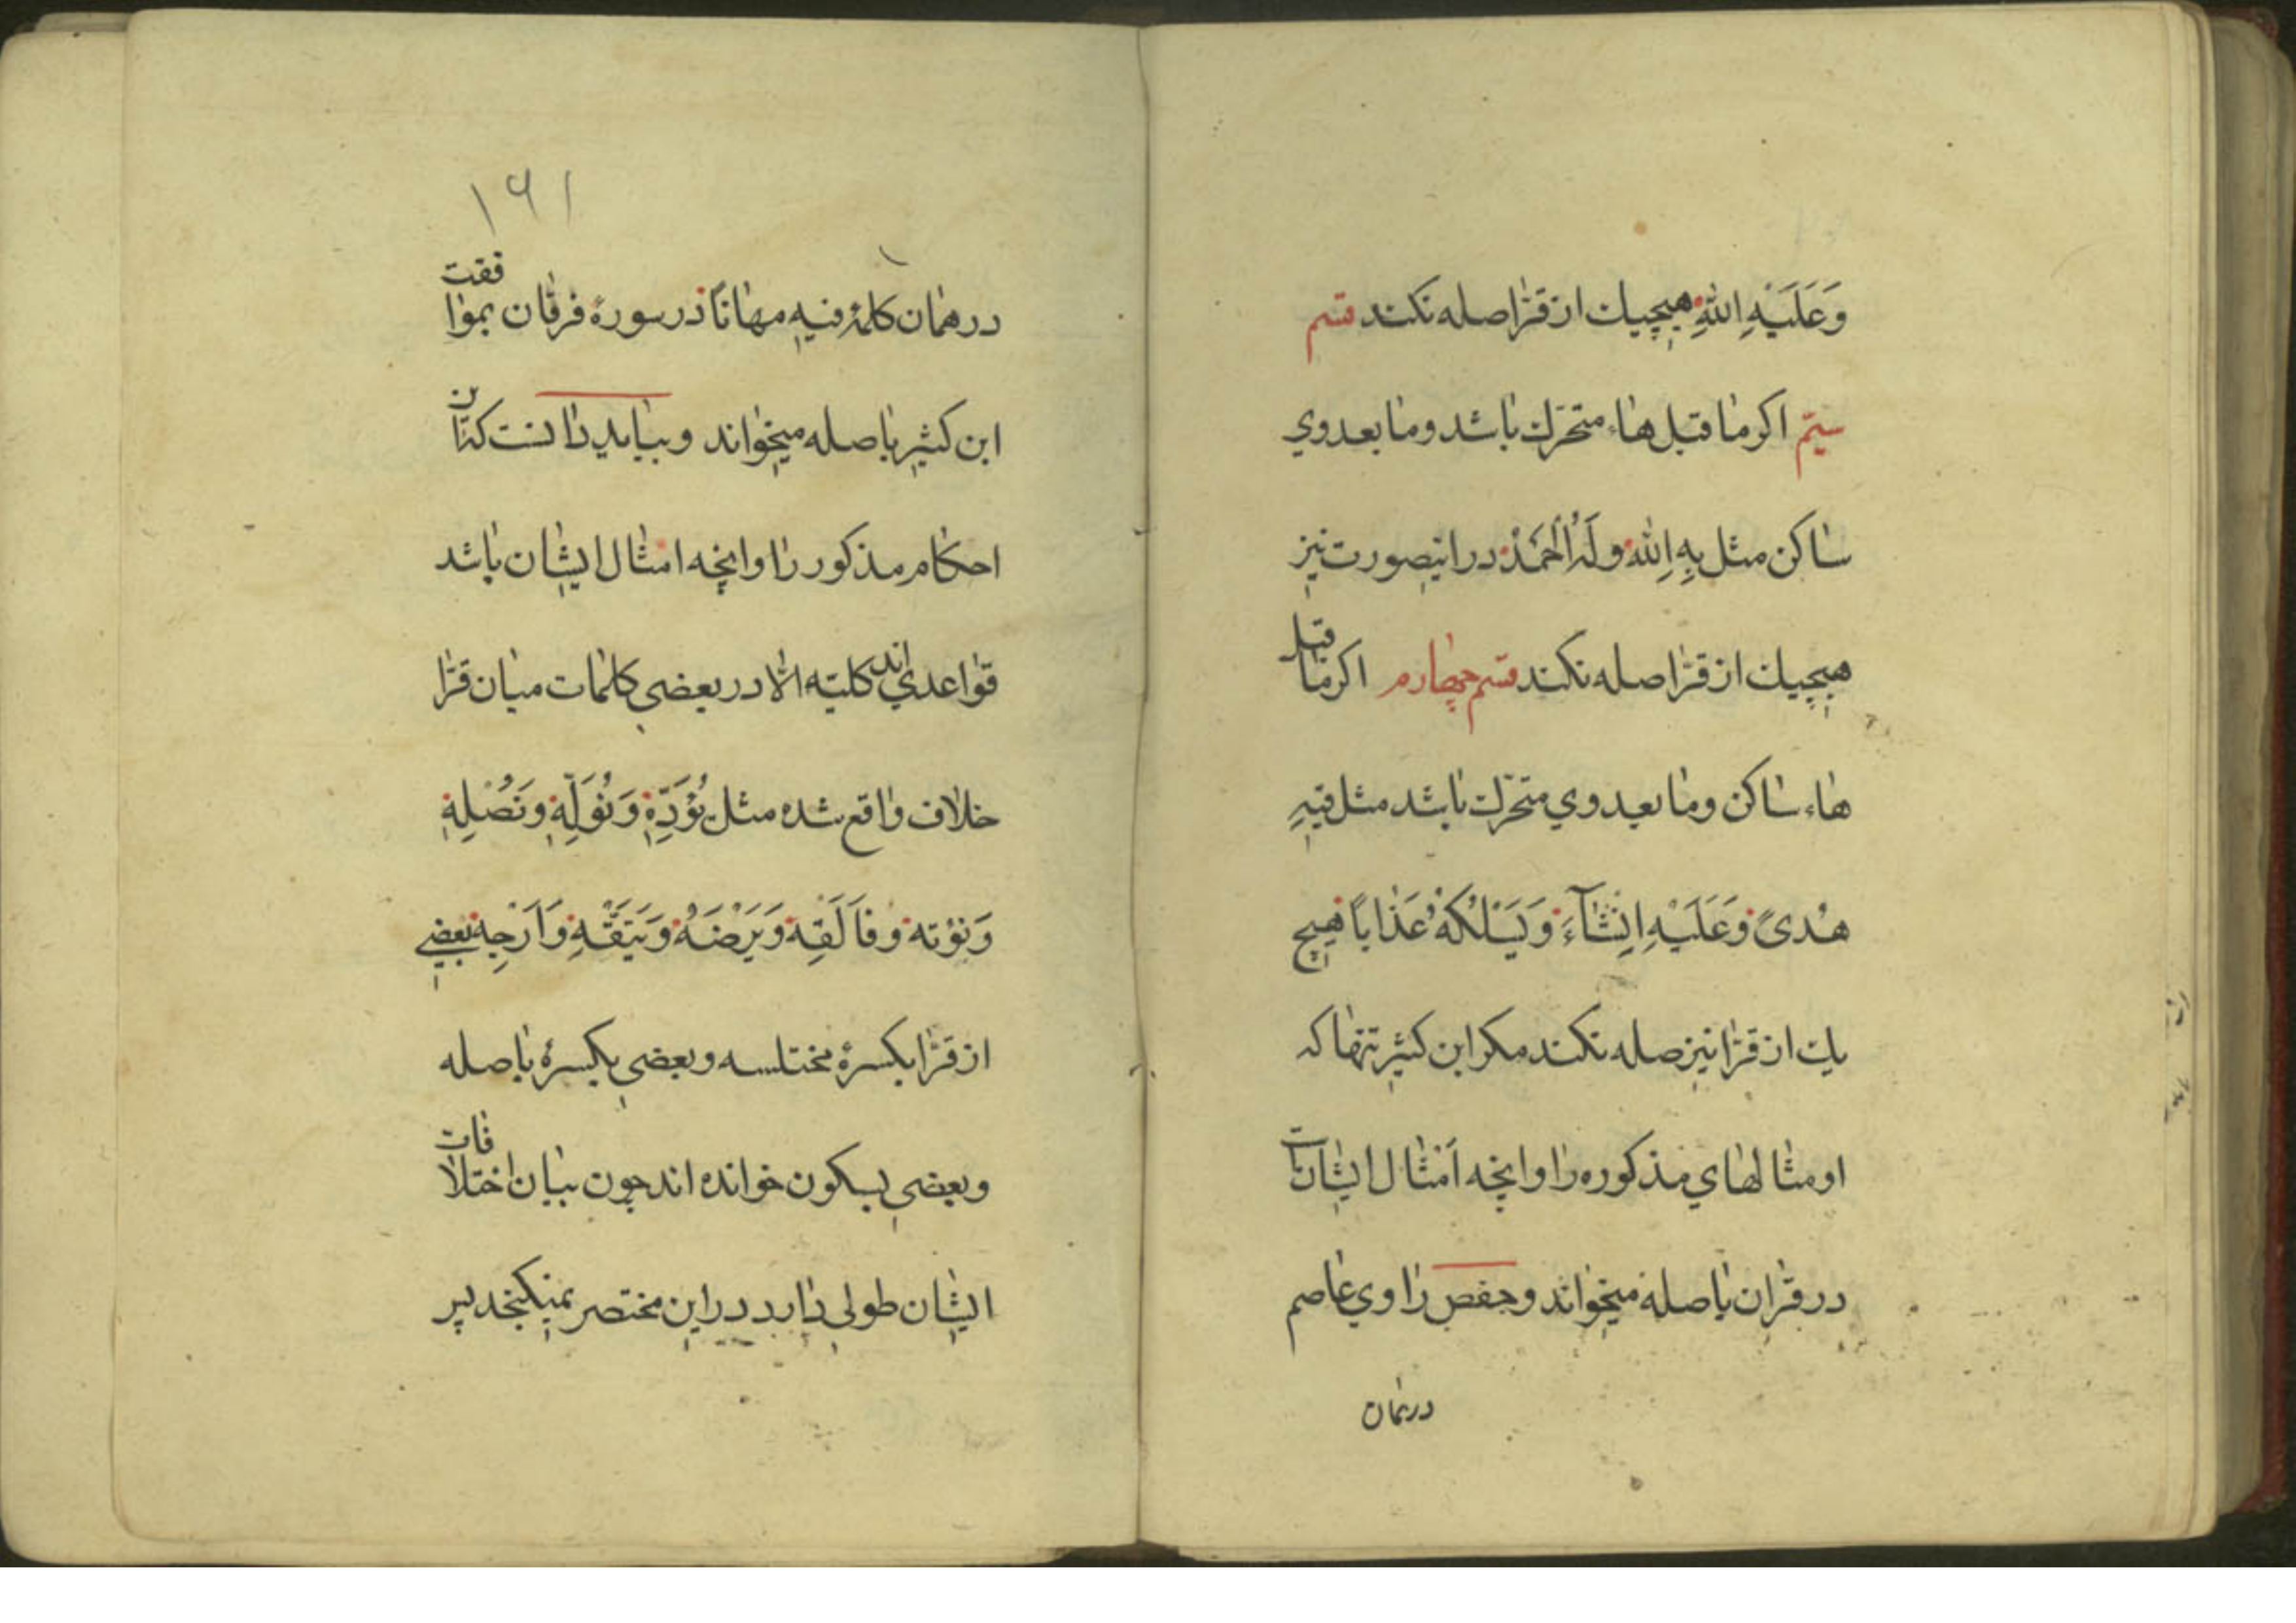 وَعَلَيْهِ اللّٰهِ هیچیك از قرّا صله نکند قسم
سیّم اکر ما قبل هاء متحرّك باشد وما بعد وي
ساکن مثل بِهِ اللّٰه و لَهُ الْحَمْدُ در اینصورت نیز
هیچیك از قرّا صله نکند قسم چهارم اکر ما قبل
هاء ساکن وما بعد وي متحرّك باشد مثل فیهِ
هُدیً وَعَلَیْهِ اِنْشَآءَ وَیَسْلُکْهُ عَذَاباً هیچ
یك از قرّا نیز صله نکند مکر ابن کثیر تنها که
او مثالهاي مذکوره را وانچه اَمْثال ایشانست
در قران با صله میخواند وحفص راوي عاصم
درهمان
۱۶۱
در همان کلمهٔ فیهِ مهاناً در سورهٔ فرقان بموافقت
ابن کثیر با صله میخواند وبباید دانست که این
احکام مذکور را وانچه امثال ایشان باشد
قواعدي اند کلیّه امّا در بعضي کلمات میان قرّا
خلاف واقع شده مثل یُؤَدِّهِ وَنُوَلِّهِ ونُصْلِهِ
وَنُؤته و فَاَلْقِه وَیَرْضَهُ وَیَتَّقْهِ وَاَرْجِه بعضي
از قرّا بکسرهٔ مختلسه وبعضي بکسرهٔ با صله
وبعضي بسکون خوانده اند چون بیان اختلافات
ایشان طولي دارد در این مختصر نمیکنجد پس